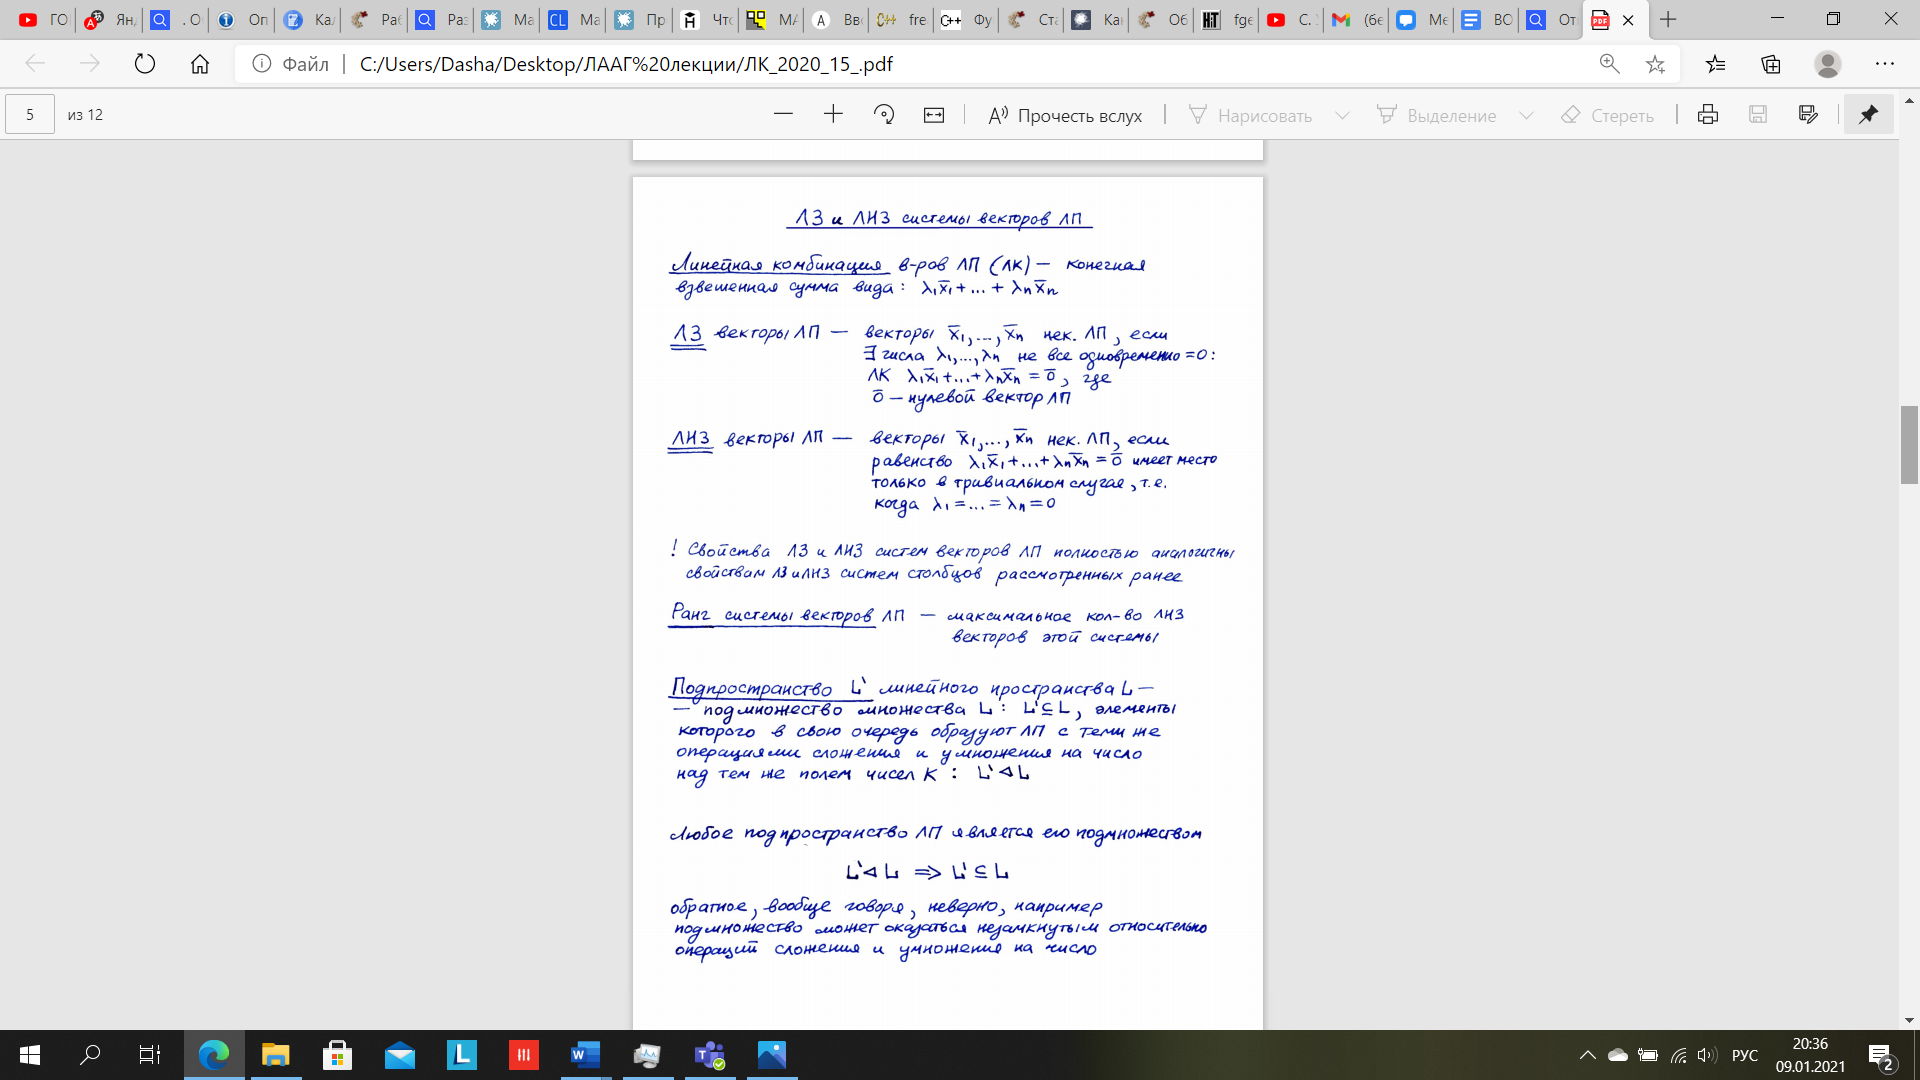 ГО
Янд
. О
Оп
Кал
Раб
Раз
Ма
CL Ма
Пр
Что
МА
A Вве
fre
C++ Фу
Ста
Как
Об
HiT fge
С. У
(бе
Ме
ВО
От
PDF
Файл | C:/Users/Dasha/Desktop/ЛААГ%20лекции/ЛК_2020_15_.pdf
5 из 12
Прочесть вслух
Нарисовать
Выделение
Стереть
ЛЗ и ЛНЗ системы векторов ЛП
Линейная комбинация в-ров ЛП (ЛК) — конечная
взвешенная сумма вида: λ₁x̄₁+...+ λₙx̄ₙ
ЛЗ векторы ЛП — векторы x̄₁,...,x̄ₙ нек. ЛП, если
∃ числа λ₁,...,λₙ не все одновременно =0:
ЛК λ₁x̄₁+...+λₙx̄ₙ = 0̄, где
0̄ — нулевой вектор ЛП
ЛНЗ векторы ЛП — векторы x̄₁,...,x̄ₙ нек. ЛП, если
равенство λ₁x̄₁+...+λₙx̄ₙ = 0̄ имеет место
только в тривиальном случае, т.е.
когда λ₁=...=λₙ=0
! Свойства ЛЗ и ЛНЗ систем векторов ЛП полностью аналогичны
свойствам ЛЗ и ЛНЗ систем столбцов рассмотренных ранее
Ранг системы векторов ЛП — максимальное кол-во ЛНЗ
векторов этой системы
Подпространство L' линейного пространства L —
— подмножество множества L: L'⊆L, элементы
которого в свою очередь образуют ЛП с теми же
операциями сложения и умножения на число
над тем же полем чисел K: L'⊲L
Любое подпространство ЛП является его подмножеством
L'⊲L ⇒ L'⊆L
обратное, вообще говоря, неверно, например
подмножество может оказаться незамкнутым относительно
операций сложения и умножения на число
РУС
20:36
09.01.2021
2